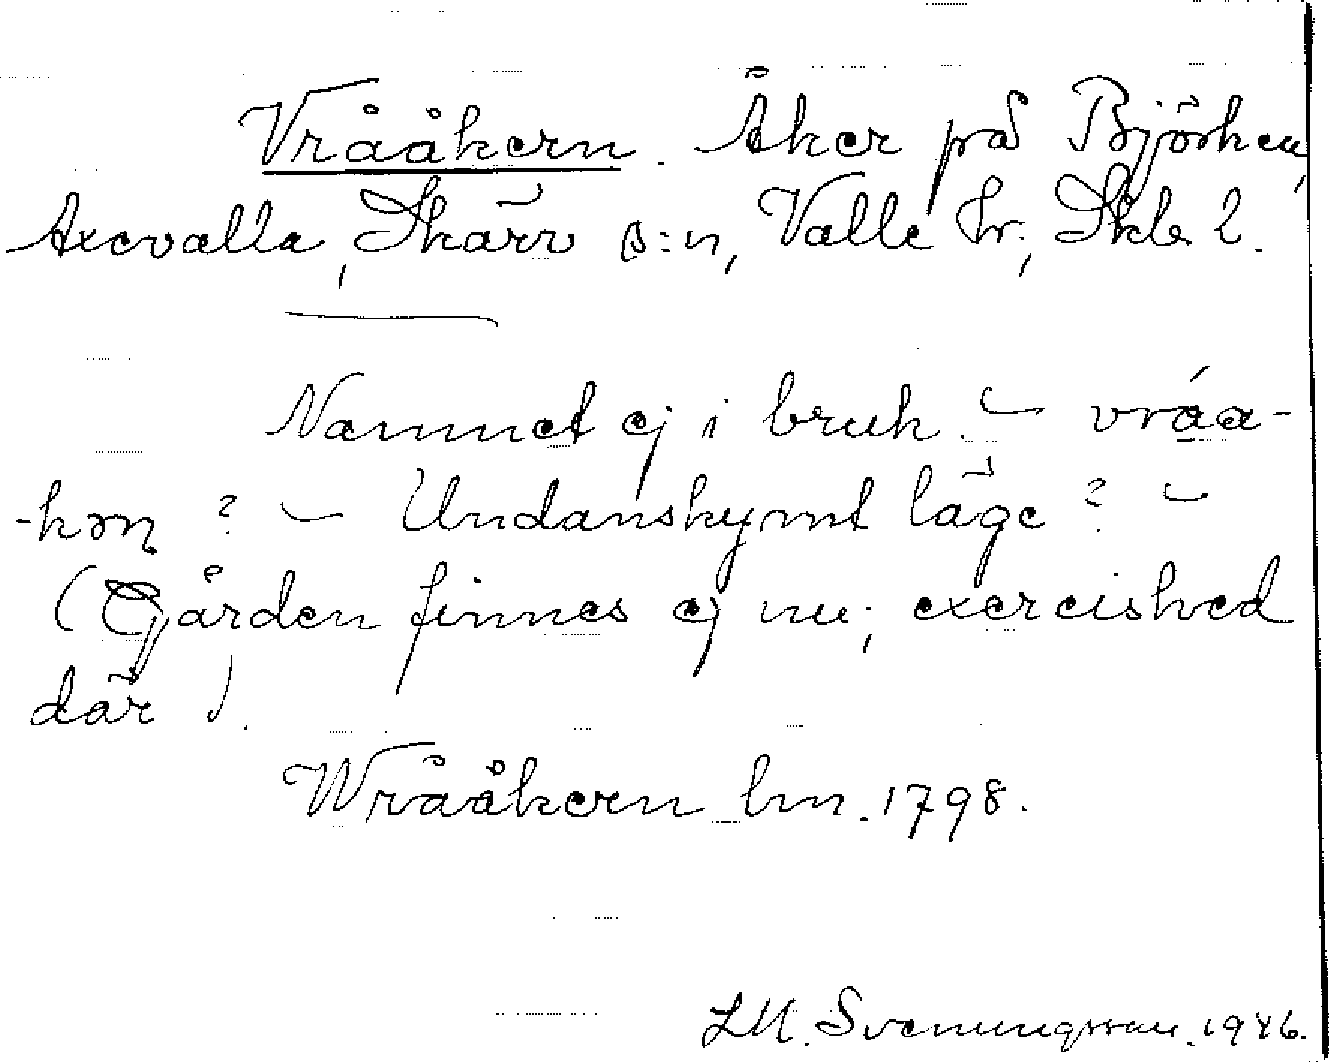 Vrååkern. Åker på Björken,
Axevalla, Skärv s:n, Valle hr; Skbs l.
Namnet ej i bruk. – vráa-
-kən ? – Undanskymt läge ? –
(Gården finnes ej nu; exercished
där).
Wrååkern lm. 1798.
LM. Svenungsson. 1946.